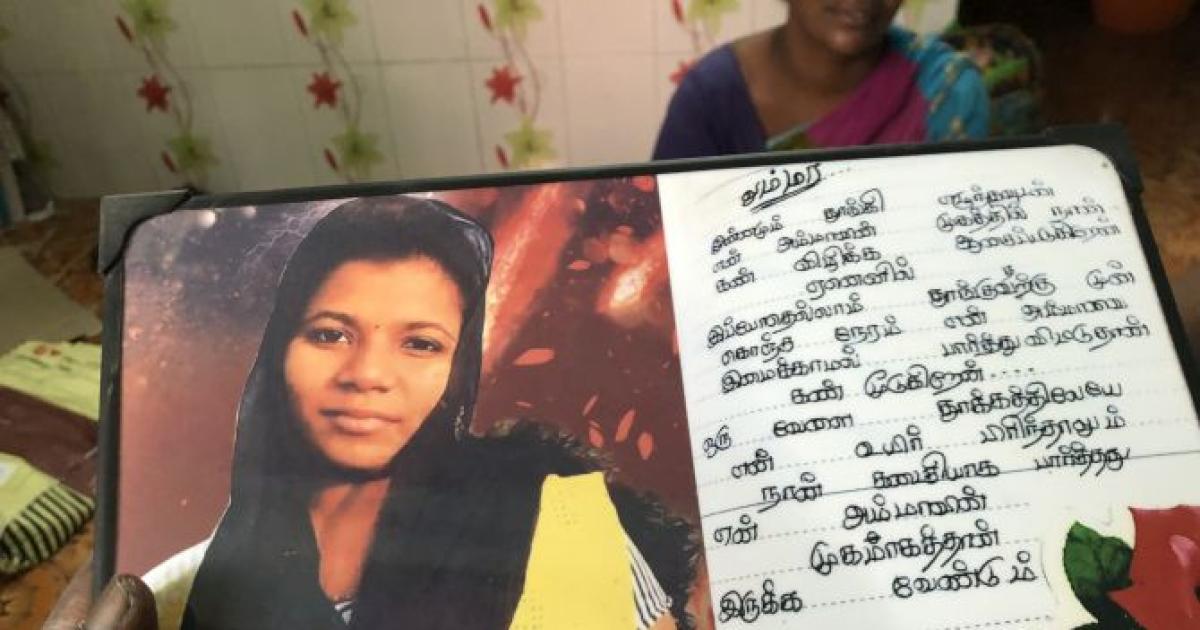 அம்மா
தினமும் தூங்கி எழுந்தவுடன்
என் அம்மாவின் முகத்தில் நான்
கண் விழிக்க ஆசைப்படுகிறேன்
ஏனெனில்
இப்போதெல்லாம் தூங்குவதற்கு முன்
கொஞ்ச நேரம் என் அம்மாவை
இமைக்காமல் பார்த்து விட்டுதான்
கண் மூடுகிறேன்....
ஒரு வேளை தூக்கத்திலேயே
என் உயிர் பிரிந்தாலும்
நான் கடைசியாக பார்த்தது
என் அம்மாவின்
முகமாகத்தான்
இருக்க வேண்டும்